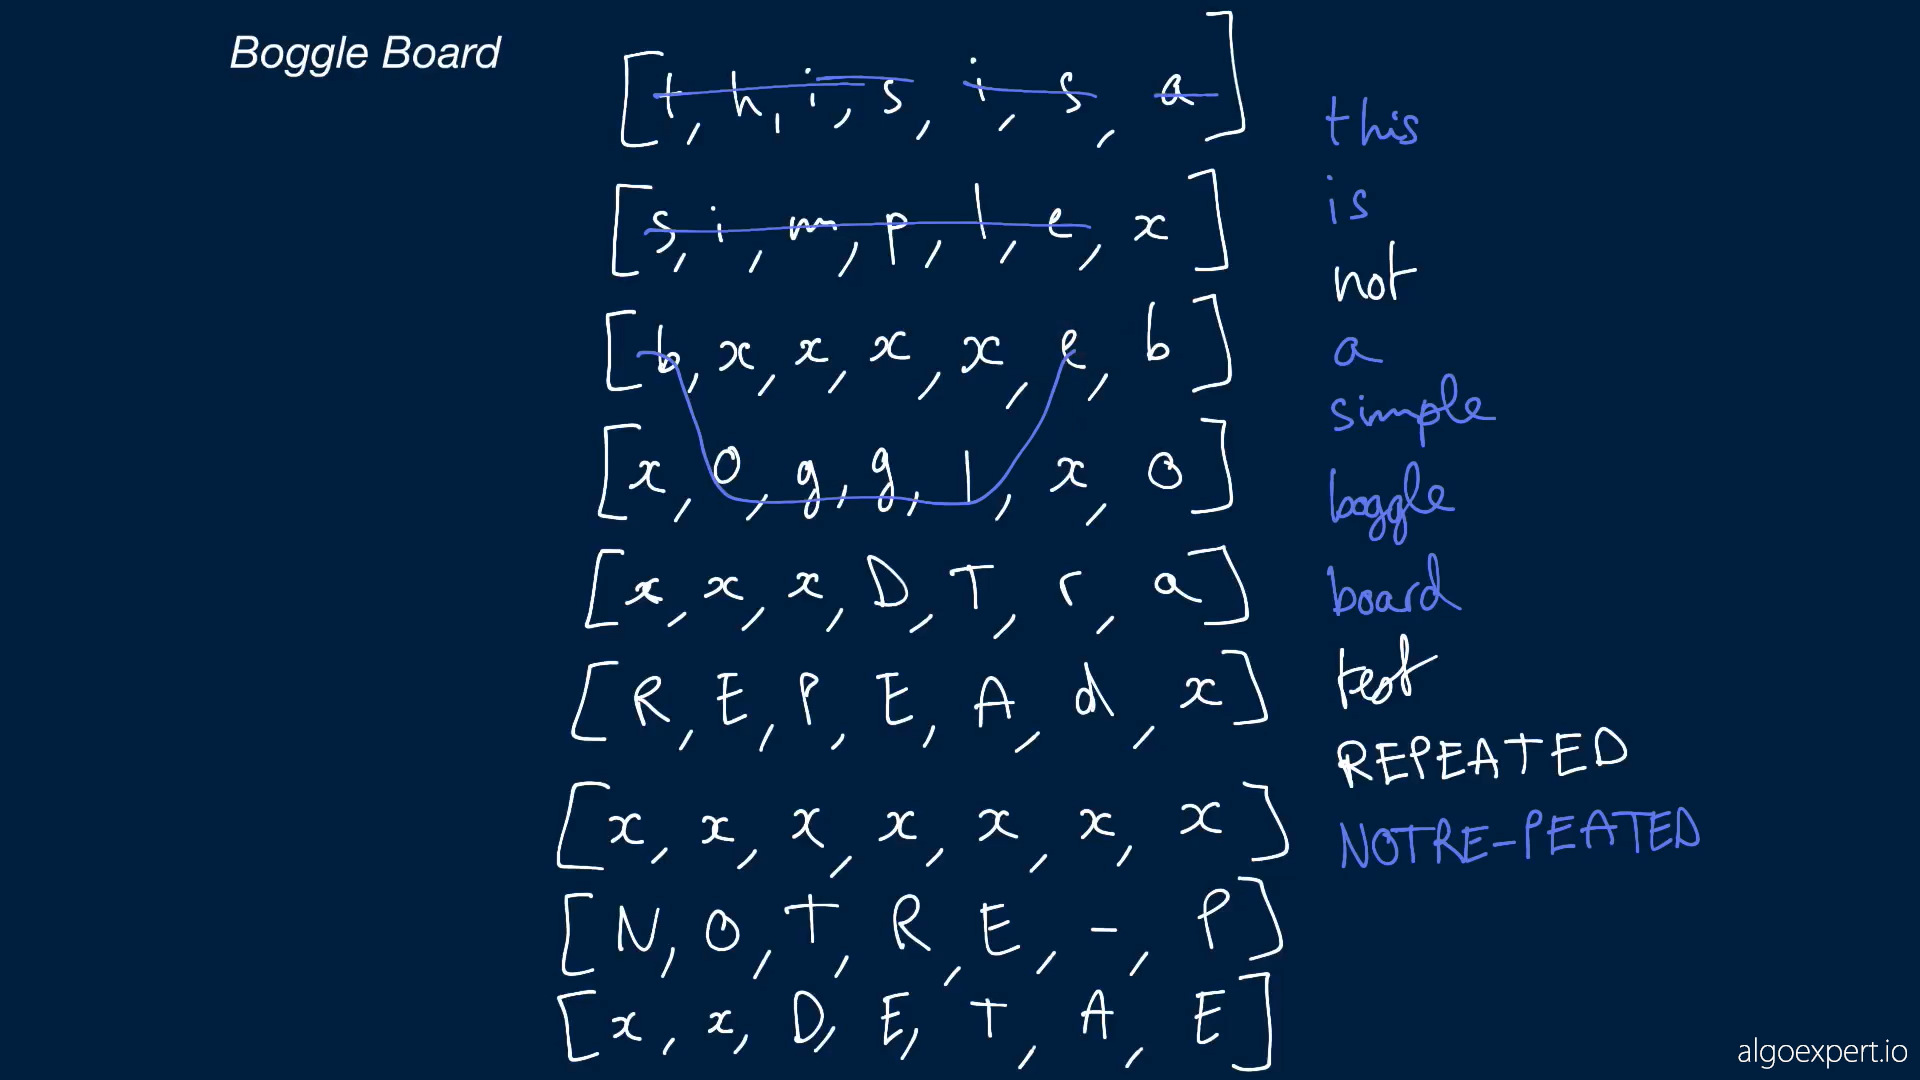 Boggle Board
[t, h, i, s, i, s, a]
[s, i, m, p, l, e, x]
[b, x, x, x, x, e, b]
[x, o, g, g, l, x, o]
[x, x, x, D, T, r, a]
[R, E, P, E, A, d, x]
[x, x, x, x, x, x, x]
[N, O, T, R, E, -, P]
[x, x, D, E, T, A, E]
this
is
not
a
simple
boggle
board
test
REPEATED
NOTRE-PEATED
algoexpert.io